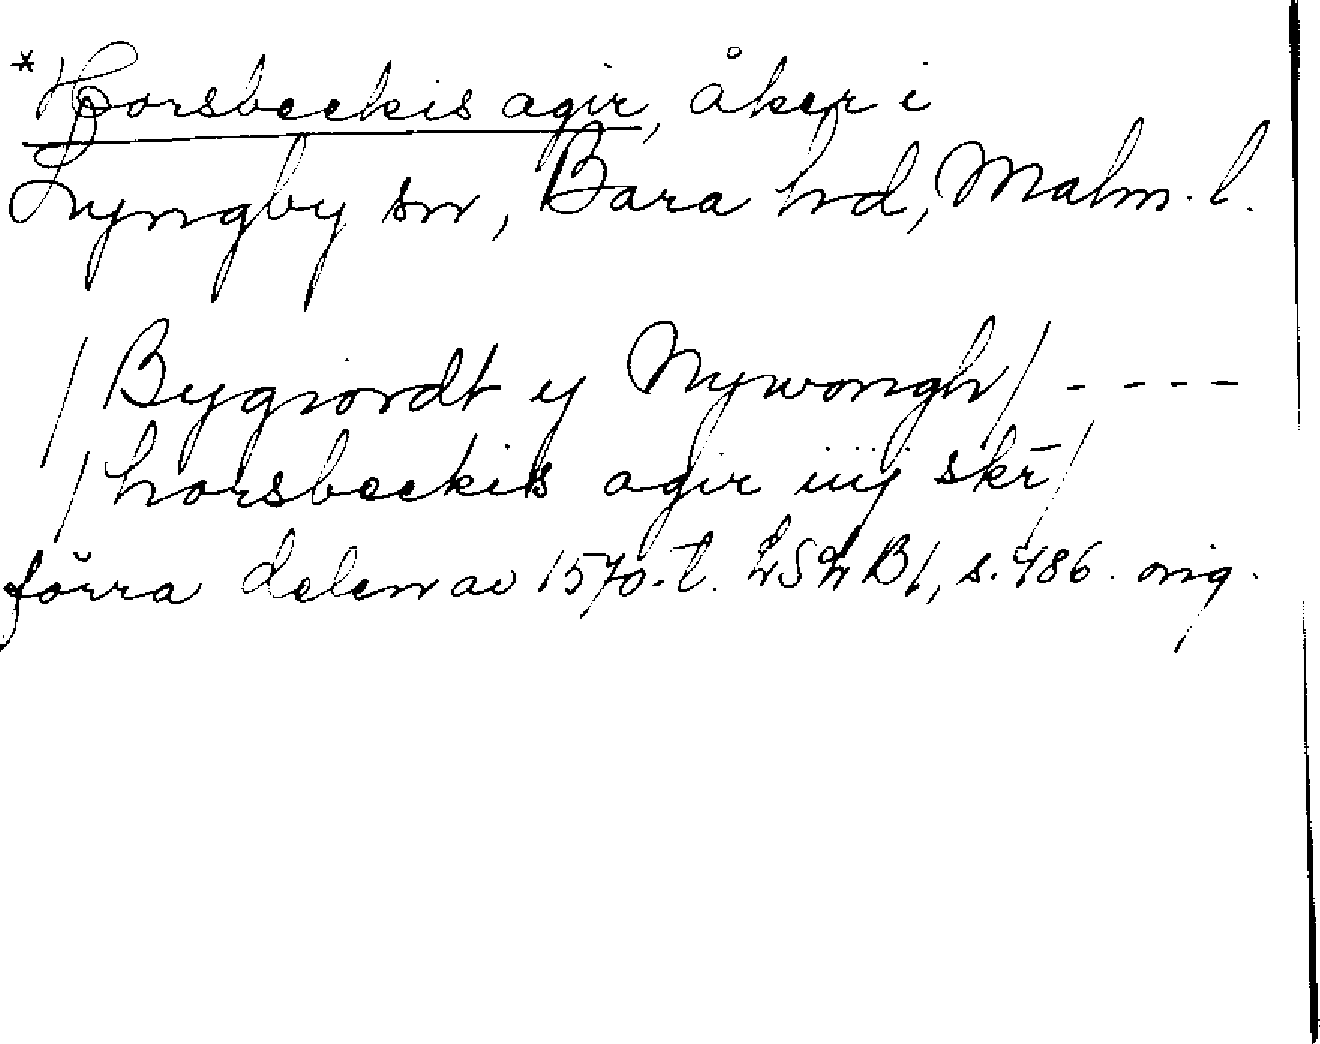 *Horsbeckis agir, åker i
Lyngby sn, Bara hd, Malm. l.
/Bygiordt y Nywongh/ - - - -
/horsbeckis agir iiij skr̄/
förra delen av 1570-t. LSLB1, s. 486. orig.